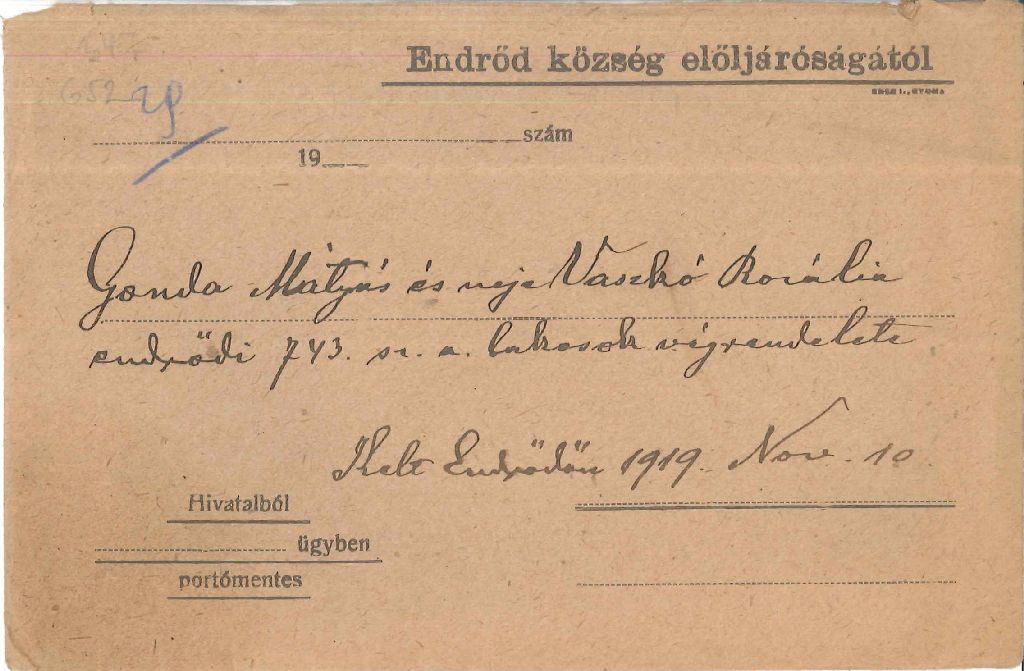 Endrőd község előljáróságától
652
29
szám
19
Gonda Mátyás és neje Vaszkó Rozália
endrődi 743. sz. a. lakosok végrendelete
Kelt Endrődön 1919. Nov. 10
Hivatalból
ügyben
portómentes